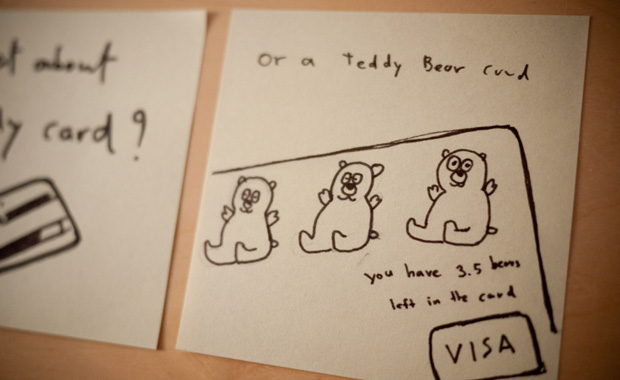 about
card?
Or a Teddy Bear card
you have 3.5 bears
left in the card
VISA